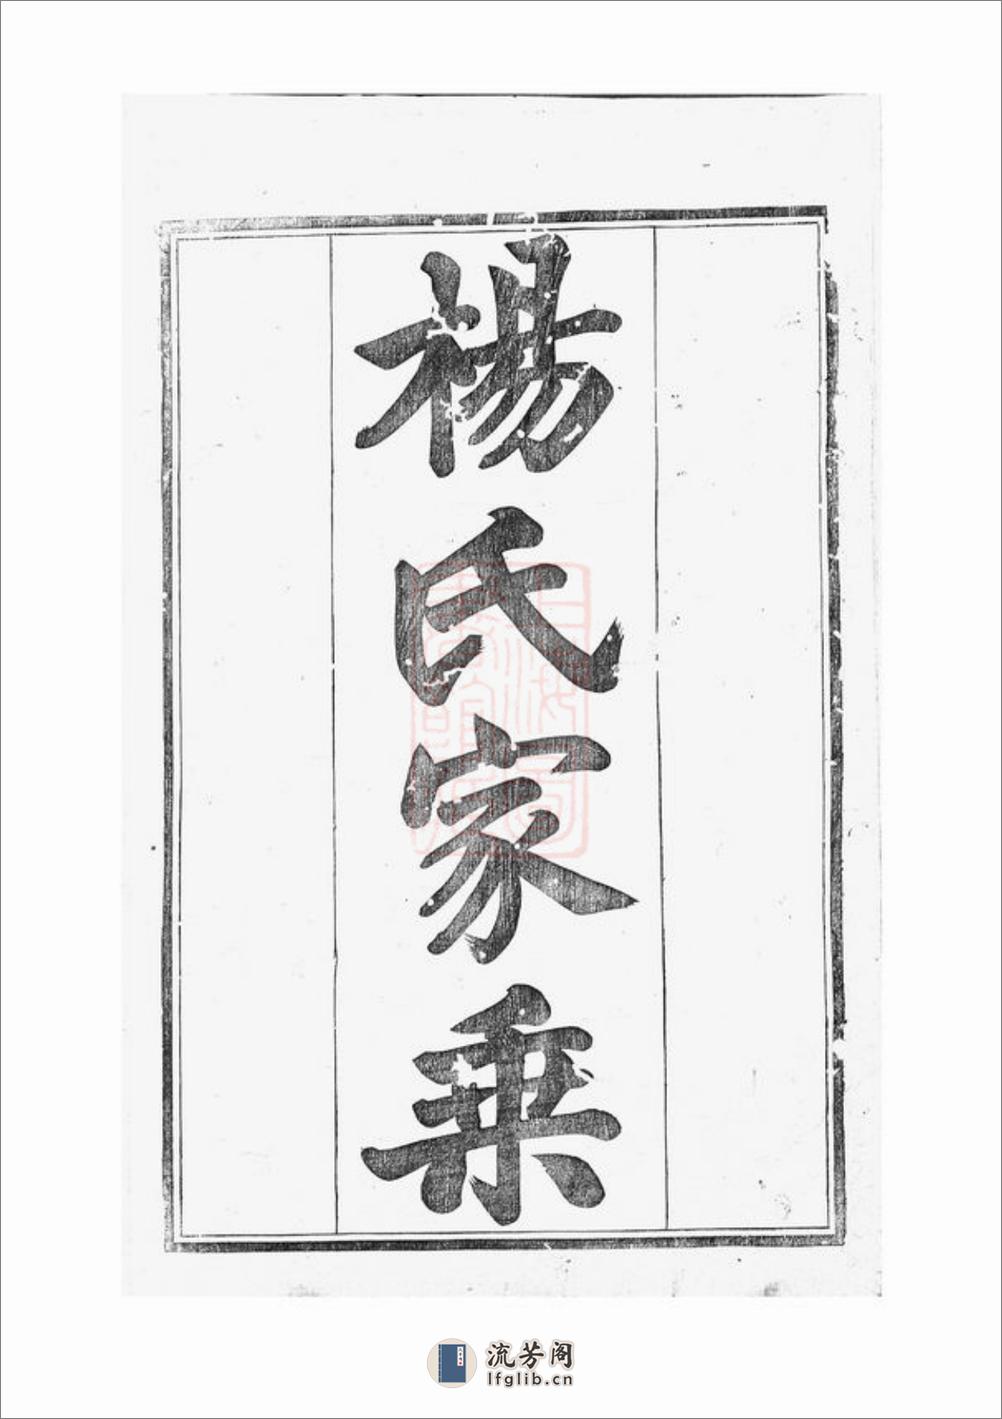 楊氏家乘
流芳阁
lfglib.cn